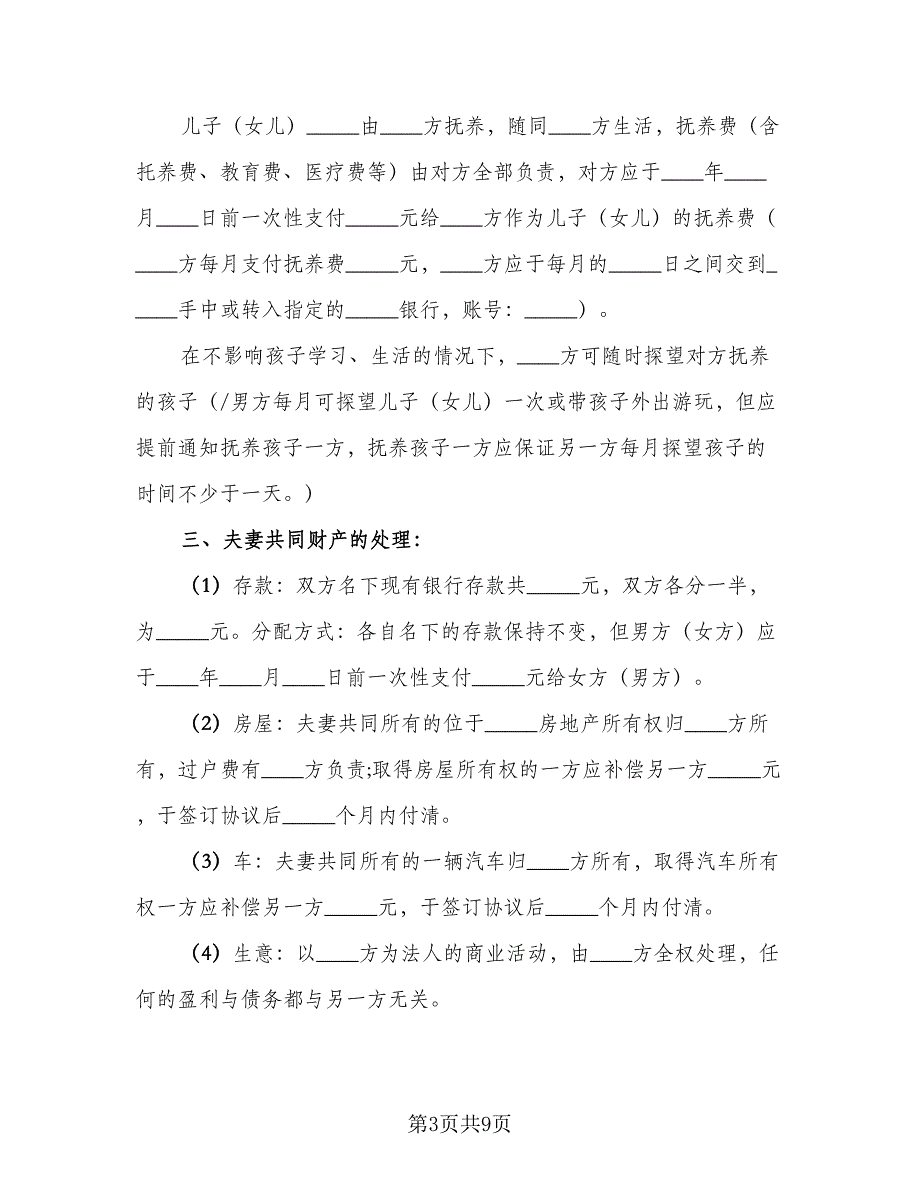 儿子（女儿）_____由____方抚养，随同____方生活，抚养费（含
托养费、教育费、医疗费等）由对方全部负责，对方应于____年____
月____日前一次性支付_____元给____方作为儿子（女儿）的抚养费（
____方每月支付抚养费_____元，____方应于每月的_____日之间交到_
____手中或转入指定的_____银行，账号：_____）。
在不影响孩子学习、生活的情况下，____方可随时探望对方抚养
的孩子（/男方每月可探望儿子（女儿）一次或带孩子外出游玩，但应
提前通知抚养孩子一方，抚养孩子一方应保证另一方每月探望孩子的
时间不少于一天。）
三、夫妻共同财产的处理：
（1）存款：双方名下现有银行存款共_____元，双方各分一半，
为_____元。分配方式：各自名下的存款保持不变，但男方（女方）应
于____年____月____日前一次性支付_____元给女方（男方）。
（2）房屋：夫妻共同所有的位于_____房地产所有权归____方所
有，过户费有____方负责;取得房屋所有权的一方应补偿另一方_____元
，于签订协议后_____个月内付清。
（3）车：夫妻共同所有的一辆汽车归____方所有，取得汽车所有
权一方应补偿另一方_____元，于签订协议后_____个月内付清。
（4）生意：以____方为法人的商业活动，由____方全权处理，任
何的盈利与债务都与另一方无关。
第3页共9页